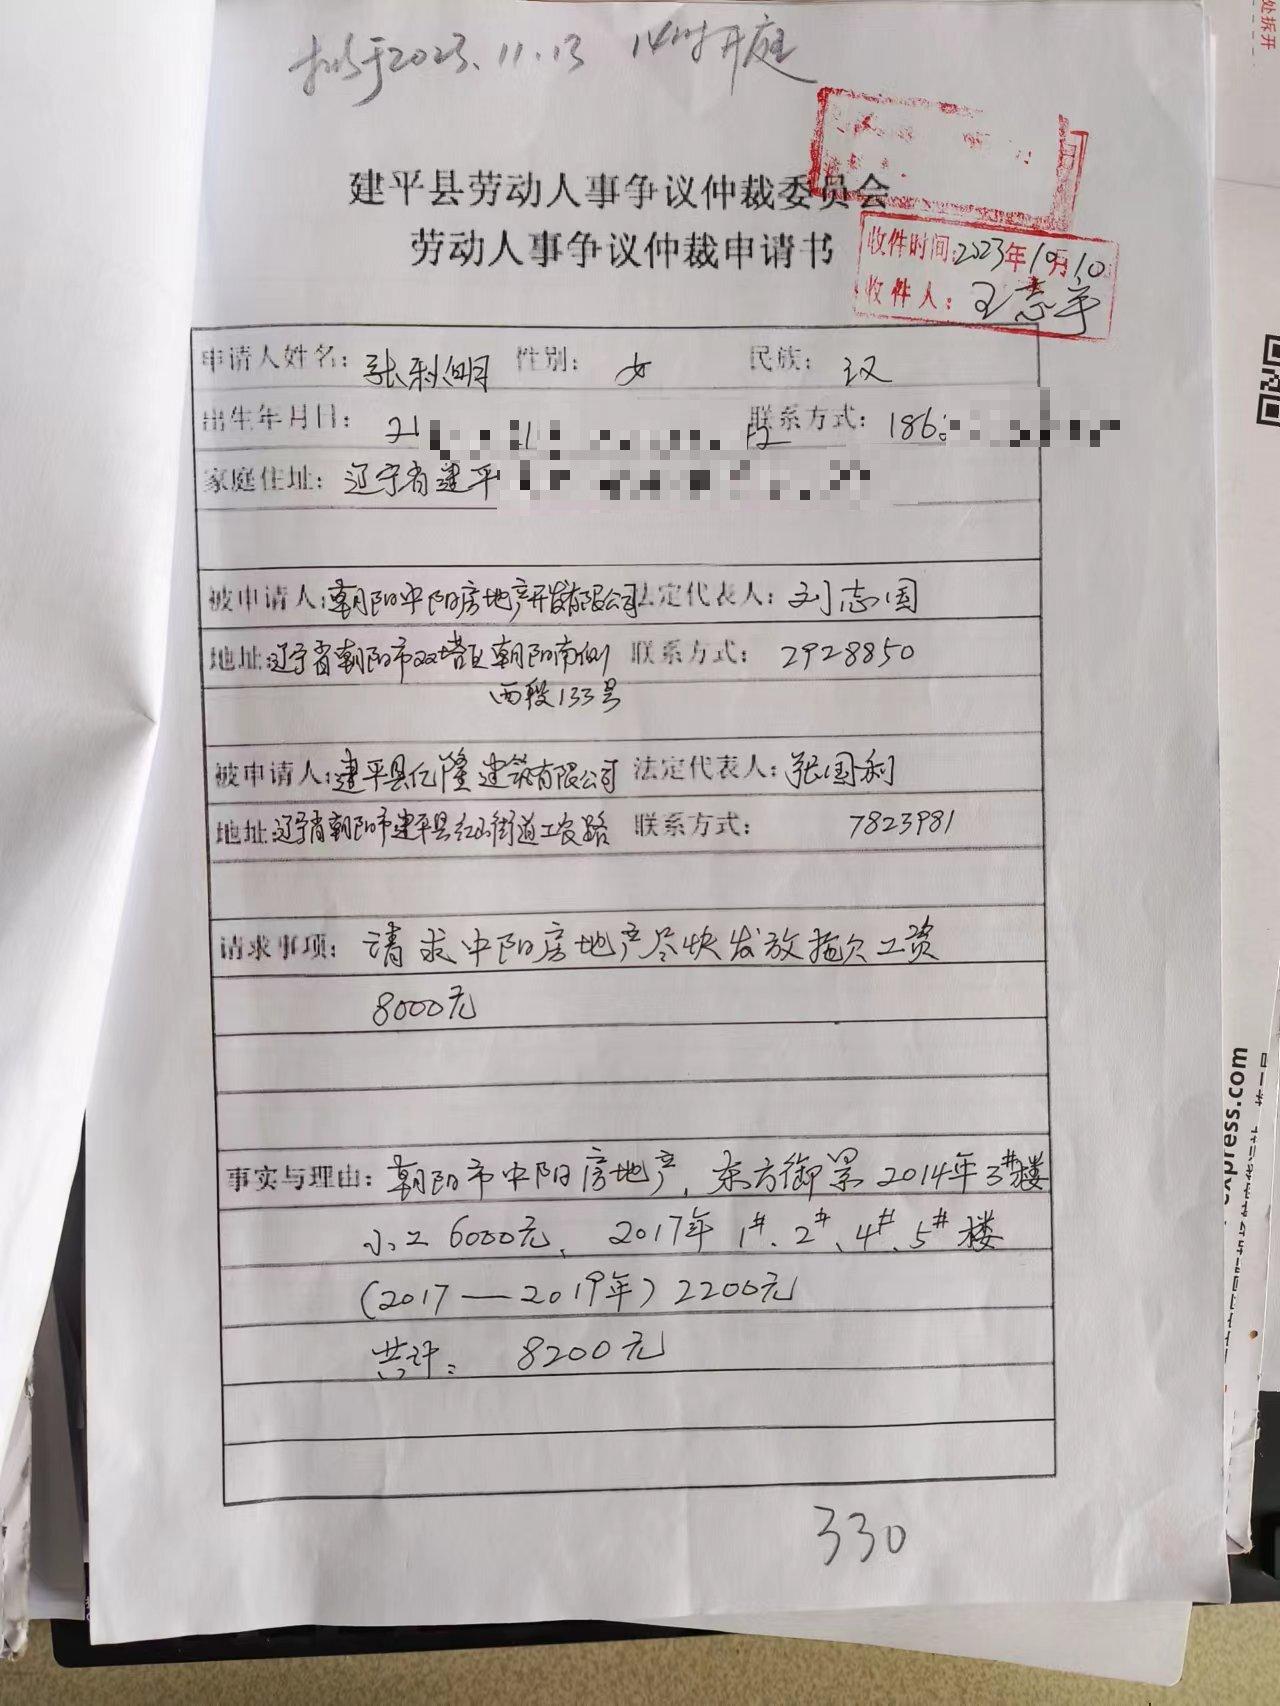 拟于2023.11.13 14时开庭
建平县劳动人事争议仲裁委员会
劳动人事争议仲裁申请书
收件时间:2023年10月10
收件人:王志宇
申请人姓名: 张利明 性别: 女 民族: 汉
出生年月日: 21 联系方式: 186
家庭住址: 辽宁省建平
被申请人:朝阳中阳房地产开发有限公司 法定代表人: 刘志国
地址:辽宁省朝阳市双塔区朝阳南侧 联系方式: 2928850
西段133号
被申请人:建平县亿隆建筑有限公司 法定代表人:张国利
地址:辽宁省朝阳市建平县红山街道工农路 联系方式: 7823981
请求事项: 请求中阳房地产尽快发放拖欠工资
8000元
事实与理由: 朝阳市中阳房地产,东方御景2014年3#楼
小工6000元、2017年1#、2#、4#、5#楼
(2017—2019年)2200元
共计: 8200元
330
处拆开
express.com